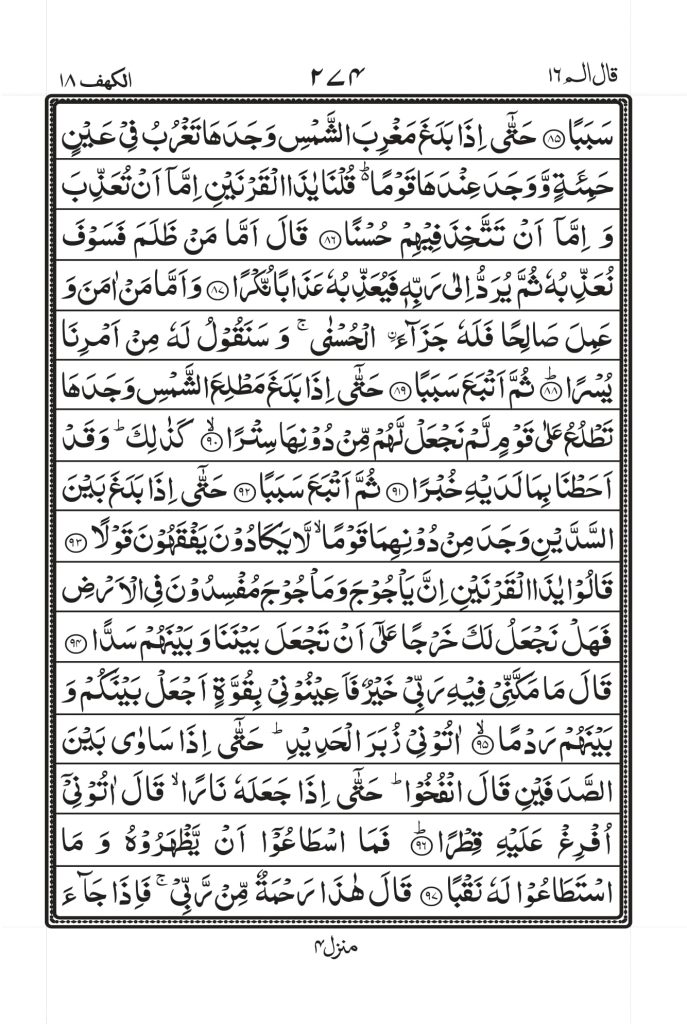 قال الم ١٦
٢٧٤
الكهف ١٨
سَبَبًا ﴿٨٥﴾ حَتّٰۤى اِذَا بَلَغَ مَغْرِبَ الشَّمْسِ وَجَدَهَا تَغْرُبُ فِیْ عَیْنٍ
حَمِئَةٍ وَّ وَجَدَ عِنْدَهَا قَوْمًا ؕ۬ قُلْنَا یٰذَا الْقَرْنَیْنِ اِمَّاۤ اَنْ تُعَذِّبَ
وَ اِمَّاۤ اَنْ تَتَّخِذَ فِیْهِمْ حُسْنًا ﴿٨٦﴾ قَالَ اَمَّا مَنْ ظَلَمَ فَسَوْفَ
نُعَذِّبُهٗ ثُمَّ یُرَدُّ اِلٰى رَبِّهٖ فَیُعَذِّبُهٗ عَذَابًا نُّكْرًا ﴿٨٧﴾ وَ اَمَّا مَنْ اٰمَنَ وَ
عَمِلَ صَالِحًا فَلَهٗ جَزَآءَ ۨ الْحُسْنٰى ۚ وَ سَنَقُوْلُ لَهٗ مِنْ اَمْرِنَا
یُسْرًا ؕ﴿٨٨﴾ ثُمَّ اَتْبَعَ سَبَبًا ﴿٨٩﴾ حَتّٰۤى اِذَا بَلَغَ مَطْلِعَ الشَّمْسِ وَجَدَهَا
تَطْلُعُ عَلٰى قَوْمٍ لَّمْ نَجْعَلْ لَّهُمْ مِّنْ دُوْنِهَا سِتْرًا ۙ﴿٩٠﴾ كَذٰلِكَ ؕ وَ قَدْ
اَحَطْنَا بِمَا لَدَیْهِ خُبْرًا ﴿٩١﴾ ثُمَّ اَتْبَعَ سَبَبًا ﴿٩٢﴾ حَتّٰۤى اِذَا بَلَغَ بَیْنَ
السَّدَّیْنِ وَجَدَ مِنْ دُوْنِهِمَا قَوْمًا ۙ لَّا یَكَادُوْنَ یَفْقَهُوْنَ قَوْلًا ﴿٩٣﴾
قَالُوْا یٰذَا الْقَرْنَیْنِ اِنَّ یَاْجُوْجَ وَ مَاْجُوْجَ مُفْسِدُوْنَ فِی الْاَرْضِ
فَهَلْ نَجْعَلُ لَكَ خَرْجًا عَلٰۤى اَنْ تَجْعَلَ بَیْنَنَا وَ بَیْنَهُمْ سَدًّا ﴿٩٤﴾
قَالَ مَا مَكَّنِّیْ فِیْهِ رَبِّیْ خَیْرٌ فَاَعِیْنُوْنِیْ بِقُوَّةٍ اَجْعَلْ بَیْنَكُمْ وَ
بَیْنَهُمْ رَدْمًا ۙ﴿٩٥﴾ اٰتُوْنِیْ زُبَرَ الْحَدِیْدِ ؕ حَتّٰۤى اِذَا سَاوٰى بَیْنَ
الصَّدَفَیْنِ قَالَ انْفُخُوْا ؕ حَتّٰۤى اِذَا جَعَلَهٗ نَارًا ۙ قَالَ اٰتُوْنِیْۤ
اُفْرِغْ عَلَیْهِ قِطْرًا ؕ﴿٩٦﴾ فَمَا اسْطَاعُوْۤا اَنْ یَّظْهَرُوْهُ وَ مَا
اسْتَطَاعُوْا لَهٗ نَقْبًا ﴿٩٧﴾ قَالَ هٰذَا رَحْمَةٌ مِّنْ رَّبِّیْ ۚ فَاِذَا جَآءَ
منزل ٤